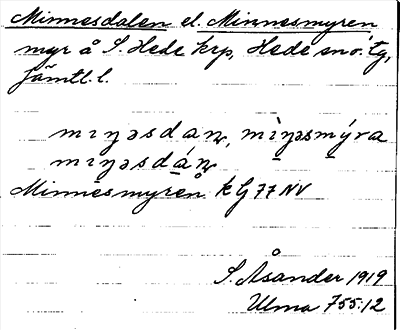 Minnesdalen el. Minnesmyren
myr å S. Hede krp, Hede sn o. tg,
Jämtl. l.
mıŋəsdaṇ, mìŋəsmýra
mıŋəsdáṇ
Minnesmyren k G 77 NV
S. Åsander 1919
Ulma 755:12